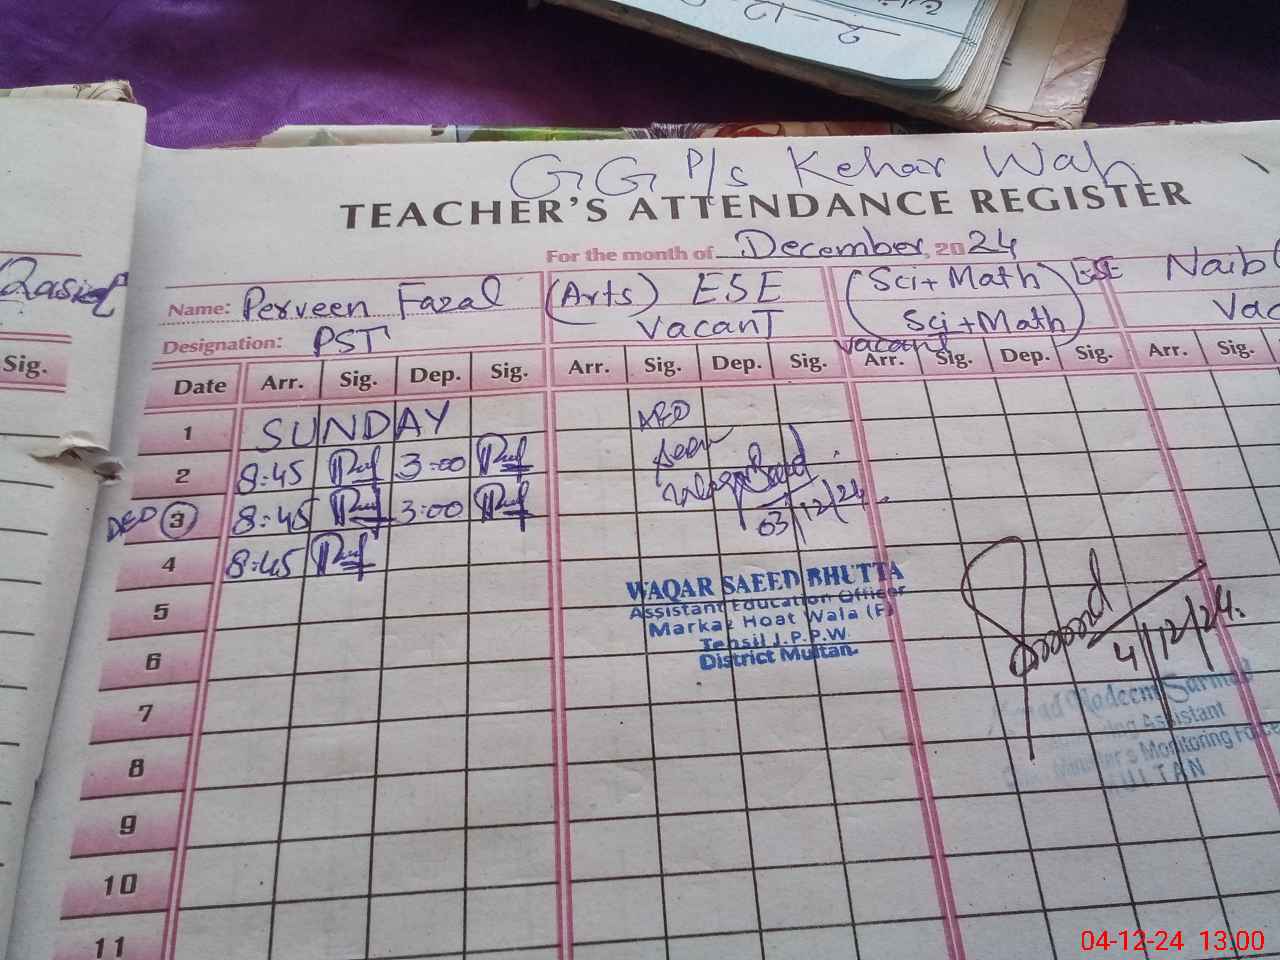 GG P/s Kehar Wah
TEACHER'S ATTENDANCE REGISTER
For the month of December, 2024
Name: Perveen Fazal (Arts) ESE (Sci+Math) ESE Naib
Vacant Sci+Math Vac
Designation: PST vacant
Sig. Date Arr. Sig. Dep. Sig. Arr. Sig. Dep. Sig. Arr. Sig. Dep. Sig. Arr. Sig.
1 SUNDAY AEO
2 8:45 3:00 Seen
3 8:45 3:00 03/12/24
4 8:45
5
6
7
8
9
10
11
WAQAR SAEED BHUTTA
Assistant Education Officer
Markaz Hoat Wala (F)
Tehsil J.P.P.W.
District Multan.
4/12/24.
Nadeem Sarmad
Assistant
Monitoring Force
MULTAN
04-12-24 13.00